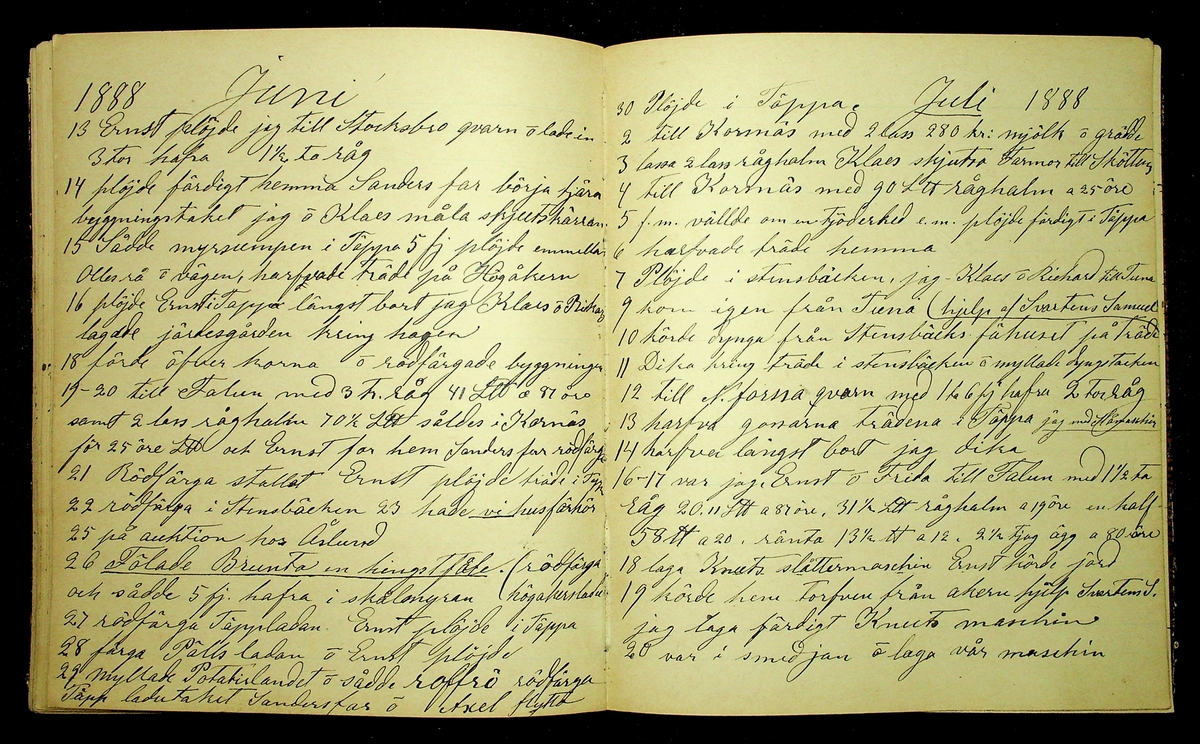 1888 Juni
13 Ernst plöjde jag till Stocksbro qvarn ō lade in
3 tor hafra 1½ ta råg
14 plöjde färdigt hemma Sanders far börja tjära
byggningstaket jag ō Klaes måla skjutskärran
15 Sådde myrsumpen i Täppa 5 fj plöjde emmellan
Olles rå ō vägen, harfvade träde på Högåkern
16 plöjde Ernst i Täppa längst bort jag Klaes ō Rikard
lagade järdesgården kring hagen
18 förde öfver korna ō rödfärgade byggningen
19-20 till Falun med 3 t. råg 41 L℔ a 87 öre
samt 2 lass råghalm 70½ L℔ såldes i Kornäs
för 25 öre L℔ och Ernst for hem Sanders far rödfärga
21 Rödfärga stallet Ernst plöjde träde i
22 rödfärga i Stensbäcken 23 hade vi husförhör
25 på auktion hos Åslund
26 Fölade Brunta en hingstföle. (rödfärga
och sådde 5 fj. hafra i skålmyran (högåkersladan
27 rödfärga Täppladan. Ernst plöjde i Täppa
28 färga Pålls ladan ō Ernst plöjde
29 myllade Potatislandet ō sådde roffrö rödfärga
Täpp ladutaket Sandersfar ō Axel flytta
30 Plöjde i Täppa. Juli 1888
2 till Kornäs med 2 lass 280 kr: mjölk ō grädde
3 lassa 2 lass råghalm Klaes skjutsa Farmor till
4 till Kornäs med 90 L℔ råghalm a 25 öre
5 f.m. vällde om en fjöderhed e.m. plöjde färdigt i Täppa
6 harfvade träde hemma
7 Plöjde i stensbäcken, jag Klaes ō Richard till Tuna
9 kom igen från Tuna (hjelp af Svartens Samuel
10 körde dynga från Stensbäcks fähuset på träde
11 Dika kring träde i stensbäcken ō myllade dyngstacken
12 till A. forssa qvarn med 1 ta 6 fj hafra 2 tor råg
13 harfva gossarna trädena i Täppa jag med slåmaschin
14 harfva längst bort jag dika
16-17 var jag, Ernst ō Frida till Falun med 1½ ta
råg 20.11 L℔ a 87 öre, 31½ L℔ råghalm a 19 öre en half
58 ℔ a 20. ränta 13½ ℔ a 12. 2½ tjog ägg a 80 öre
18 laga Knuts slåttermaschin Ernst körde jord
19 körde hem torfven från åkern hjelp Svartens S.
jag laga färdigt Knuts maschin
20 var i smedjan ō laga vår maschin